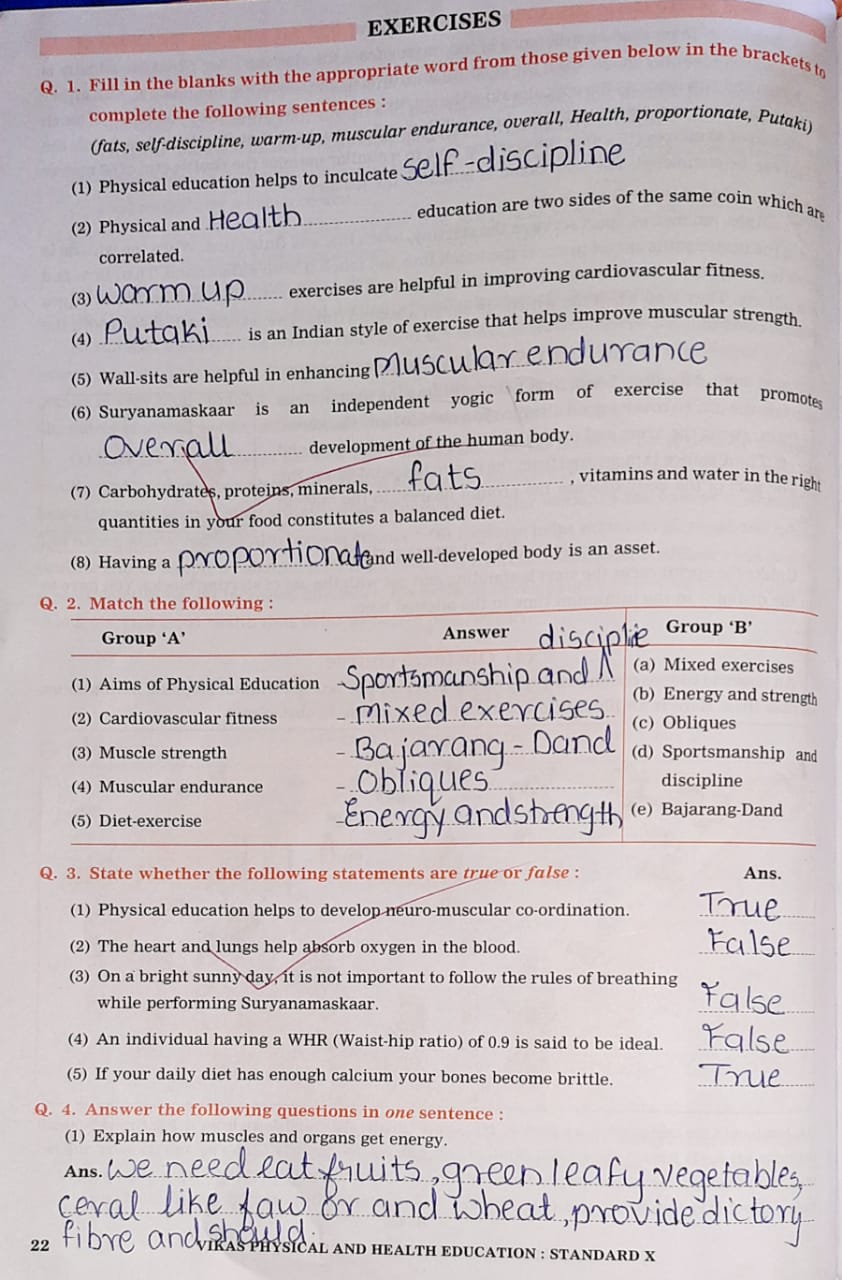 EXERCISES
Q. 1. Fill in the blanks with the appropriate word from those given below in the brackets to
complete the following sentences :
(fats, self-discipline, warm-up, muscular endurance, overall, Health, proportionate, Putaki)
(1) Physical education helps to inculcate self-discipline
(2) Physical and Health education are two sides of the same coin which are
correlated.
(3) warm up exercises are helpful in improving cardiovascular fitness.
(4) Putaki is an Indian style of exercise that helps improve muscular strength.
(5) Wall-sits are helpful in enhancing Muscular endurance
(6) Suryanamaskaar is an independent yogic form of exercise that promotes
Overall development of the human body.
(7) Carbohydrates, proteins, minerals, fats , vitamins and water in the right
quantities in your food constitutes a balanced diet.
(8) Having a proportionate and well-developed body is an asset.
Q. 2. Match the following :
Group 'A' Answer Group 'B'
(1) Aims of Physical Education - Sportsmanship and disciplie (a) Mixed exercises
(2) Cardiovascular fitness - Mixed exercises (b) Energy and strength
(3) Muscle strength - Bajarang - Dand (c) Obliques
(4) Muscular endurance - Obliques (d) Sportsmanship and
discipline
(5) Diet-exercise - Energy and strength (e) Bajarang-Dand
Q. 3. State whether the following statements are true or false : Ans.
(1) Physical education helps to develop neuro-muscular co-ordination. True
(2) The heart and lungs help absorb oxygen in the blood. False
(3) On a bright sunny day, it is not important to follow the rules of breathing
while performing Suryanamaskaar. False
(4) An individual having a WHR (Waist-hip ratio) of 0.9 is said to be ideal. False
(5) If your daily diet has enough calcium your bones become brittle. True
Q. 4. Answer the following questions in one sentence :
(1) Explain how muscles and organs get energy.
Ans. we need eat fruits, green leafy vegetables,
ceral like and wheat, provide dictory
fibre and should.
22 VIKAS PHYSICAL AND HEALTH EDUCATION : STANDARD X